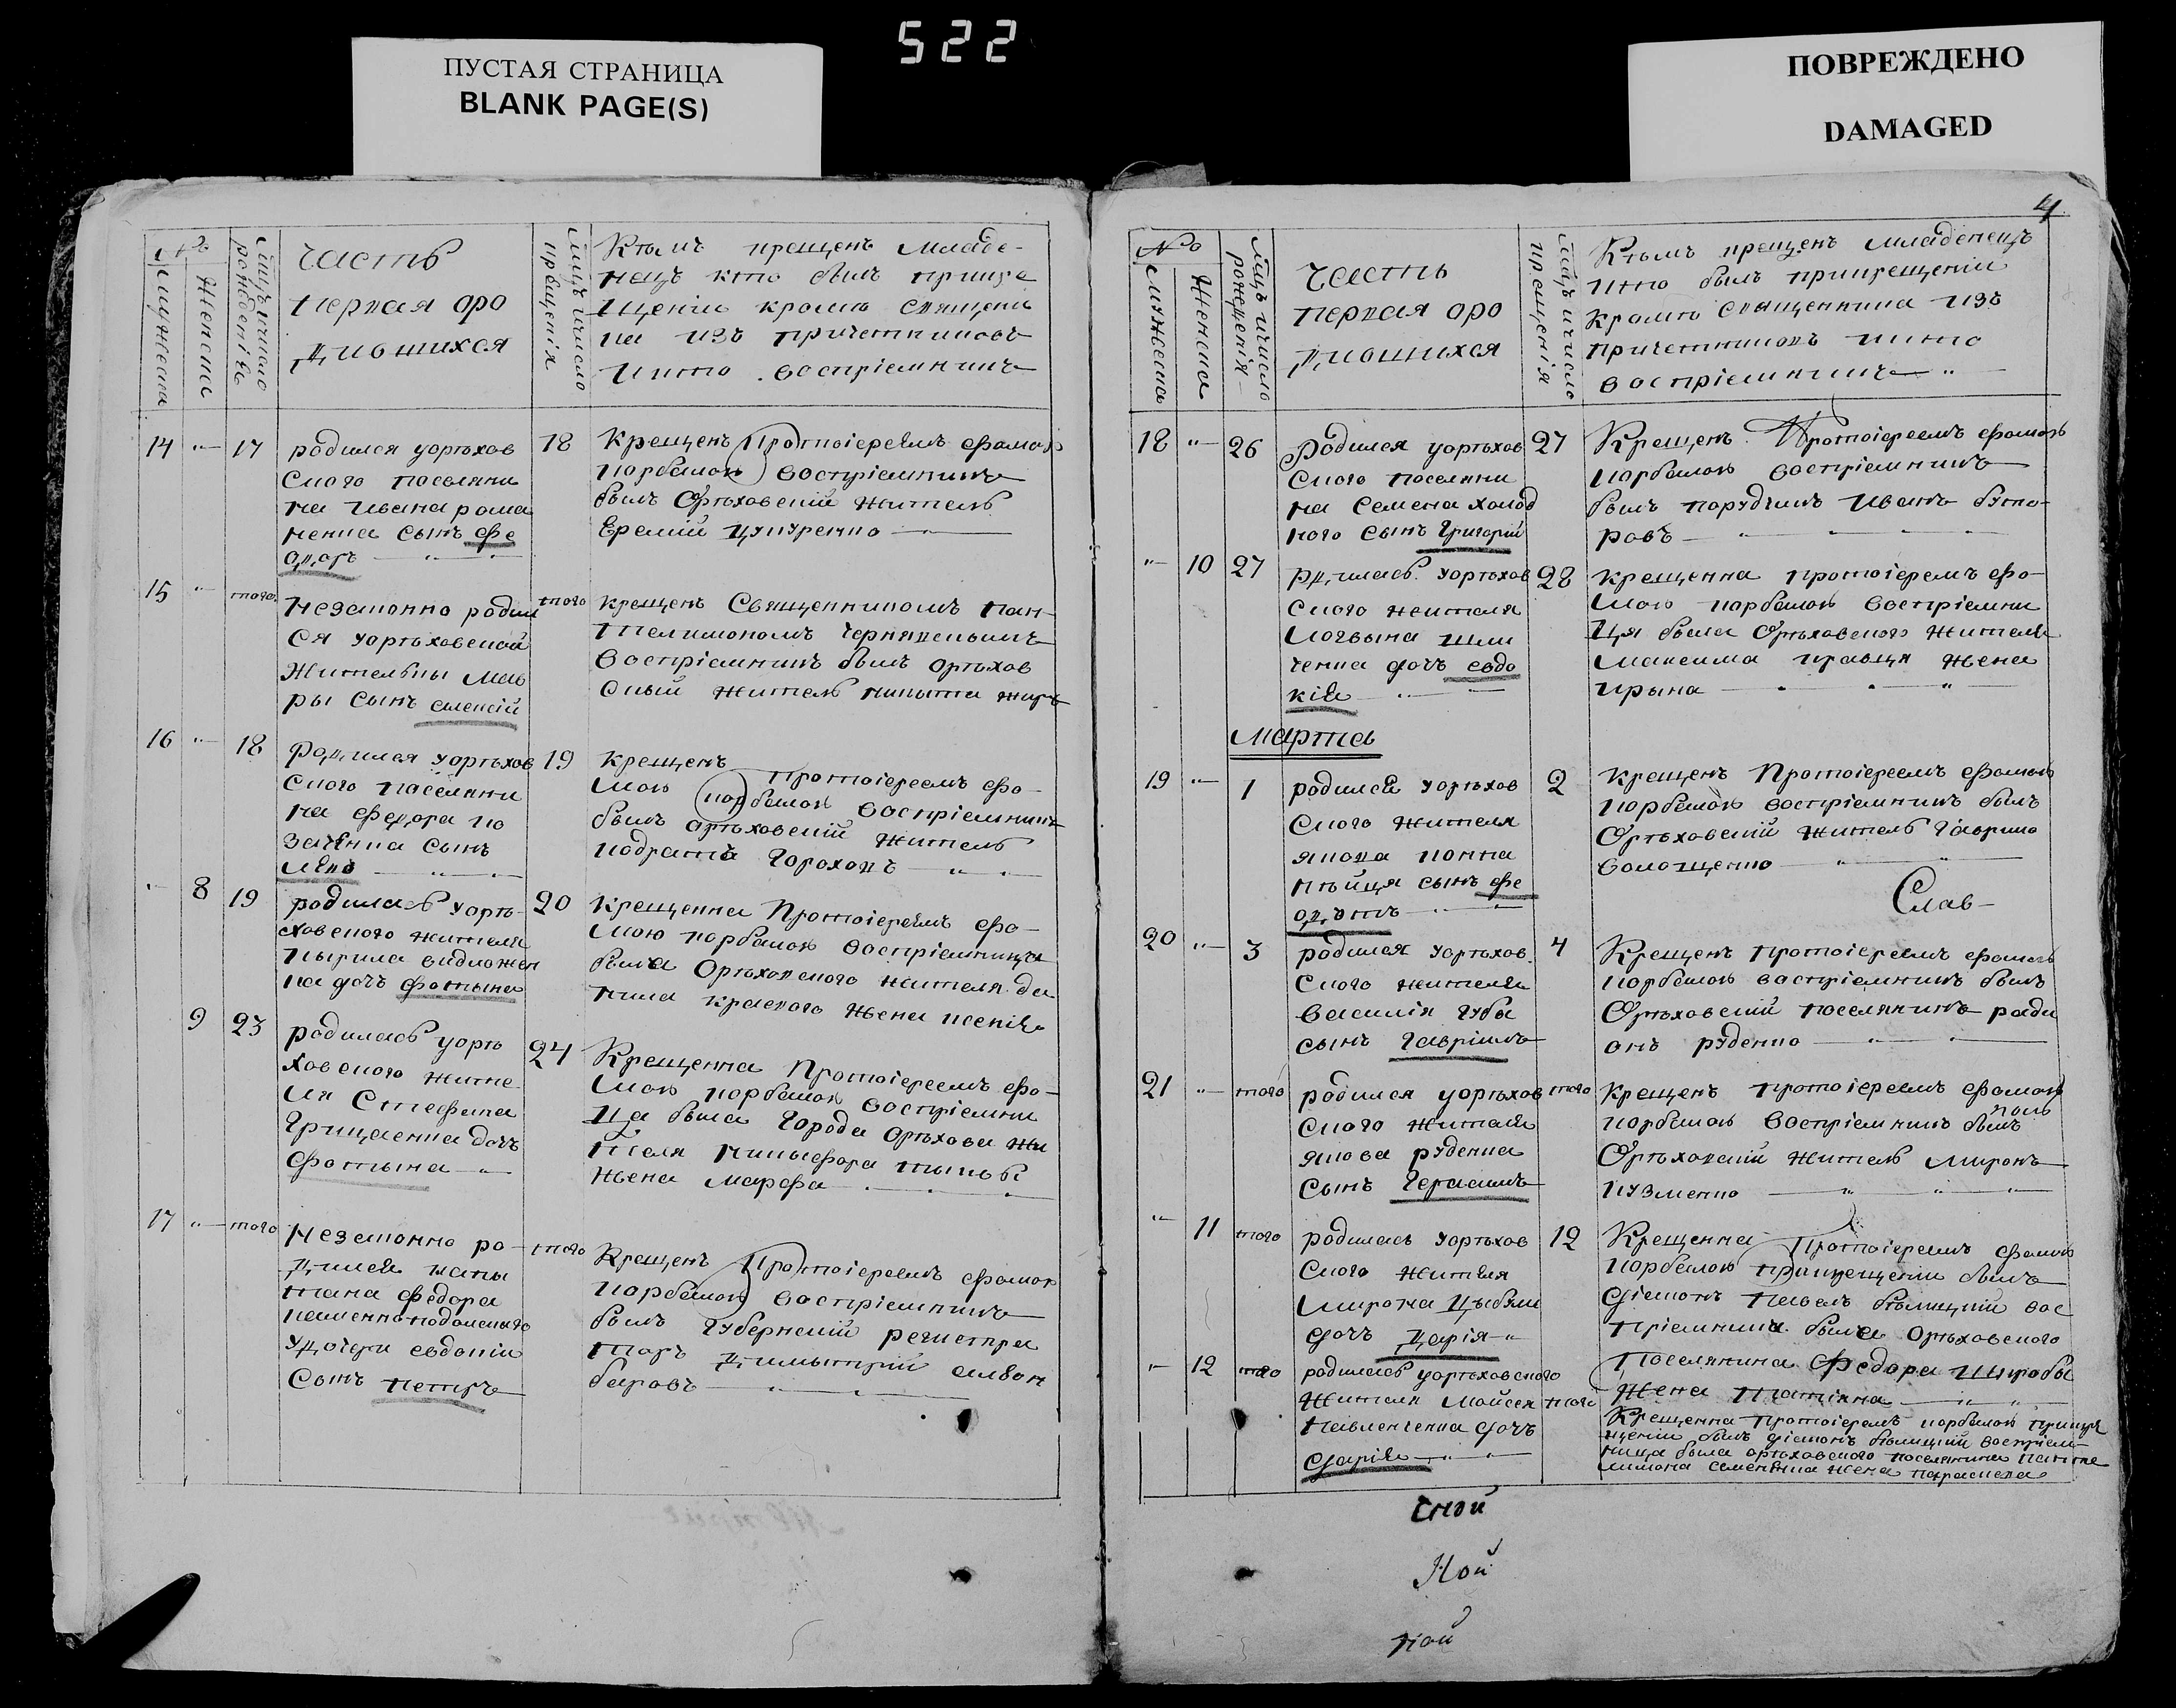 522
ПУСТАЯ СТРАНИЦА
BLANK PAGE(S)
ПОВРЕЖДЕНО
DAMAGED
4
№
мужеска
женска
мцъ и число рождения
часть
первая о ро
дившихся
мцъ и число крещенія
Кѣмъ крещенъ младе-
нецъ кто былъ при кре
щеніи кромѣ священи
ка изъ причетниковъ
и кто воспріемникъ
14 „ 17
родился у орѣхов
скаго поселяни
на ивана рома
ненка сынъ фе
одоръ
18
Крещенъ Протоіереемъ фомою
порбаюмъ воспріемникъ
былъ Орѣховскій житель
Еремій Цупуренко
15 „ того
незаконно родил
ся у орѣховской
жительки мав
ры сынъ алексій
того
крещенъ Священникомъ пан-
телимономъ чернявскимъ
воспріемникъ былъ орѣхов
скій житель никита
16 „ 18
родился у орѣхов
скаго поселяни
на федора ко
заченка сынъ
левъ
19
крещенъ Протоіереемъ фо-
мою воспріемникъ
былъ орѣховскій житель
кодратъ Гороховъ
„ 8 19
родилась у орѣ-
ховского жителя
кирила видложен
ка дочъ фотына
20
Крещенна Протоіереемъ фо-
мою воспріемница
была Орѣховского жителя да
нила красного жена ксенія
9 23
родилась у орѣ
ховского жите
ля Стефана
Грицаенка дочъ
фотына
24
Крещенна Протоіереемъ фо-
мою воспріемни
ца была города Орѣхова жи
теля никифора
жена марфа
17 „ того
незаконно ро-
дился капи
тана федора
каменноподолскаго
у дочери евдокіи
сынъ петръ
того
Крещенъ Протоіереемъ фомою
воспріемникъ
былъ Губернскій регистра
торъ Димытрій
№
мужеска
женска
мцъ и число рожденія
часть
первая о ро
дившихся
мцъ и число крещенія
Кѣмъ крещенъ младенецъ
и кто былъ при крещеніи
кромѣ священника изъ
причетниковъ и кто
воспріемникъ
18 „ 26
Родился у орѣхов
скаго поселяни
на Семена холод
ного сынъ Григорій
27
Крещенъ Протоіереемъ фомою
воспріемникъ
былъ порутчикъ Иванъ буто-
ровъ
„ 10 27
родилась у орѣхов
ского жителя
логвына
дочъ евдо
кія
28
крещенна протоіереемъ фо-
мою воспріемни
ця была Орѣховского жителя
максима кравця жена
ирына
Марта
19 „ 1
родился у орѣхов
ского жителя
якова
сынъ фе
одотъ
2
крещенъ Протоіереемъ фомою
воспріемникъ былъ
Орѣховскій житель Гаврило
волощенко
Слав-
20 „ 3
родился у орѣхов
ского жителя
василія губы
сынъ гавріилъ
4
Крещенъ протоіереемъ фомою
воспріемникъ былъ
Орѣховскій поселянинъ ради
онъ руденко
21 „ того
родился у орѣхов
ского жителя
якова руденка
сынъ герасимъ
того
Крещенъ протоіереемъ фомою
воспріемникъ былъ
Орѣховскій житель миронъ
кузменко
„ 11 того
родилась у орѣхов
ского жителя
мирона Цыбули
дочъ Дарія
12
Крещенна Протоіереемъ фомою
при крещеніи былъ
діяконъ павелъ бѣлицкій вос
пріемница была Орѣховского
поселянина Федора
жена татіяна
„ 12 того
родилась у орѣховского
жителя Мойсея
павленченка дочъ
дарія
того
Крещенна протоіереемъ при кре
щеніи былъ діяконъ бѣлицкій воспріем
ница была орѣховского поселянина панте
лимона семенька жена параскева
сной
Ной